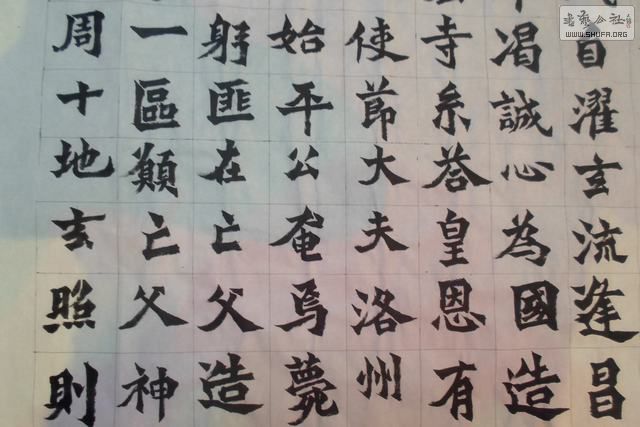 自濯玄流逢昌
渴誠心為國造
寺系荅皇恩有
使節大夫洛州
始平公奄焉薨
躬匪在亡父造
一區願亡父神
周十地玄照則
书艺公社
WWW.SHUFA.ORG